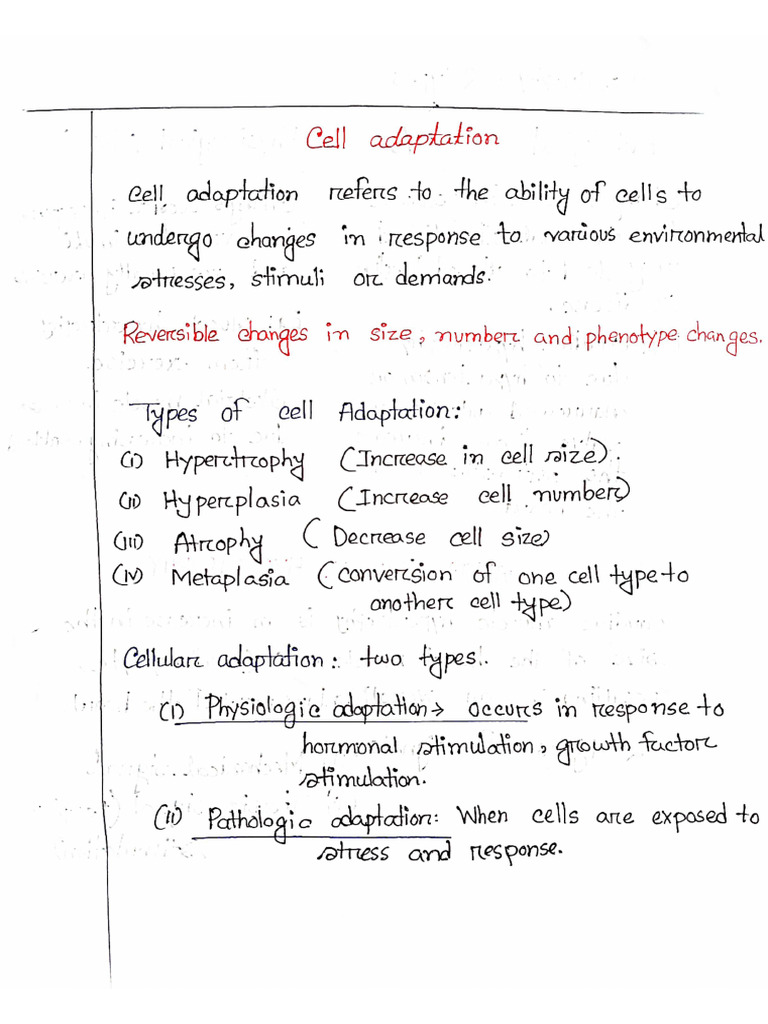 Cell adaptation
Cell adaptation refers to the ability of cells to
undergo changes in response to various environmental
stresses, stimuli or demands.
Reversible changes in size, number and phenotype changes.
Types of cell Adaptation:
(i) Hypertrophy (Increase in cell size).
(ii) Hyperplasia (Increase cell number)
(iii) Atrophy (Decrease cell size)
(iv) Metaplasia (conversion of one cell type to
another cell type)
Cellular adaptation: two types.
(i) Physiologic adaptation → occurs in response to
hormonal stimulation, growth factor
stimulation.
(ii) Pathologic adaptation: When cells are exposed to
stress and response.